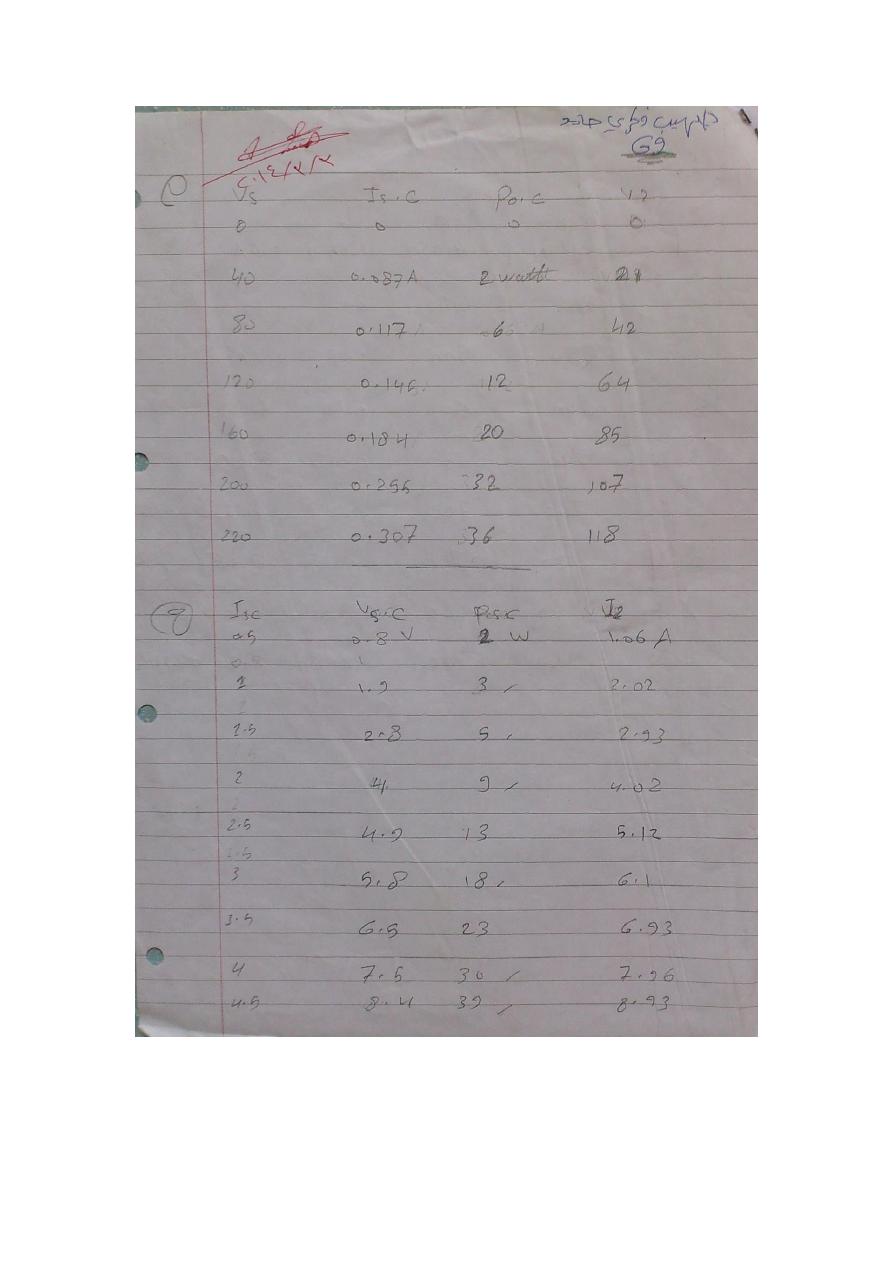 G9
Vs Is.c Po.c V2
0 0 0 0
40 0.087A 2 watt 21
80 0.117 6 42
120 0.146 12 64
160 0.184 20 85
200 0.255 32 107
220 0.307 36 118
Isc Vs.c Ps.c I2
0.5 0.8 V 2 W 1.06 A
1 1.9 3 2.02
1.5 2.8 5 2.93
2 4 9 4.02
2.5 4.9 13 5.12
3 5.8 18 6.1
3.5 6.5 23 6.93
4 7.5 30 7.96
4.5 8.4 39 8.93